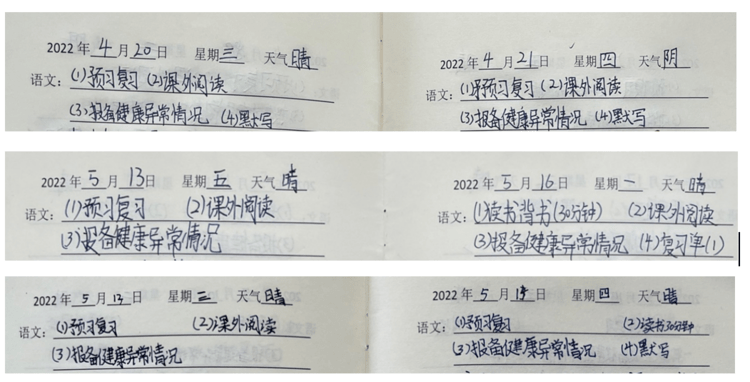 2022年 4 月 20 日 星期 三 天气 晴
语文: (1)预习复习 (2)课外阅读
(3)报备健康异常情况 (4)默写
2022年 4 月 21 日 星期 四 天气 阴
语文: (1)预习复习 (2)课外阅读
(3)报备健康异常情况 (4)默写
2022年 5 月 13 日 星期 五 天气 晴
语文: (1)预习复习 (2)课外阅读
(3)报备健康异常情况
2022年 5 月 16 日 星期 一 天气 晴
语文: (1)读书背书(30分钟) (2)课外阅读
(3)报备健康异常情况 (4)复习单(1)
2022年 5 月 日 星期 三 天气 晴
语文: (1)预习复习 (2)课外阅读
(3)报备健康异常情况
2022年 5 月 日 星期 四 天气 晴
语文: (1)预习复习 (2)读书30分钟
(3)报备健康异常情况 (4)默写